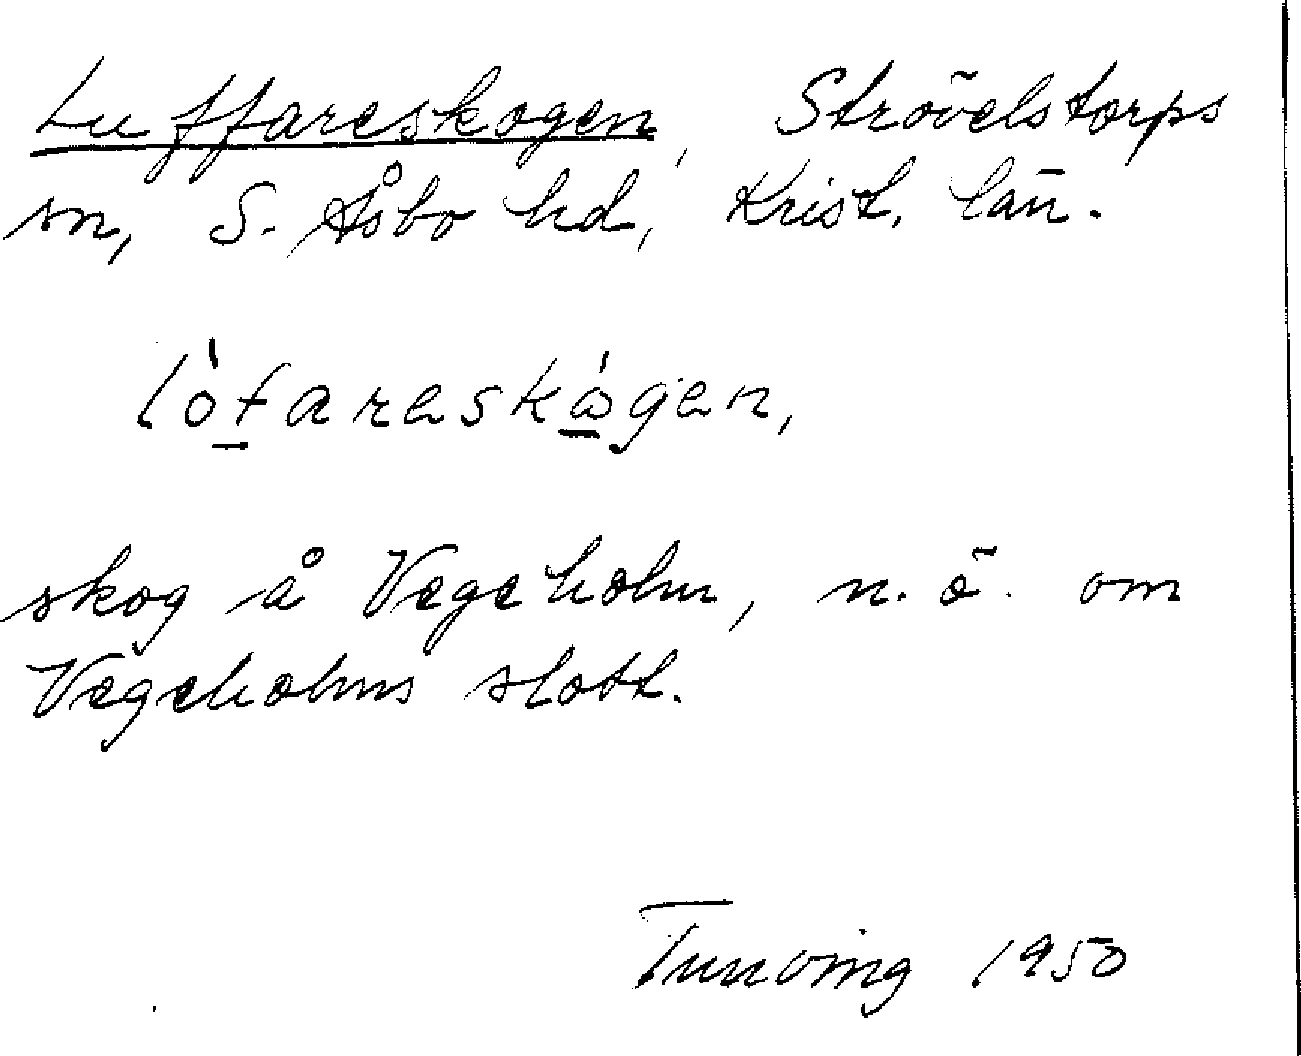 Luffareskogen, Strövelstorps
sn, S. Åsbo hd, Krist. län.
lòfareskågen,
skog å Vegeholm, n.ö. om
Vegeholms slott.
Tunving 1950